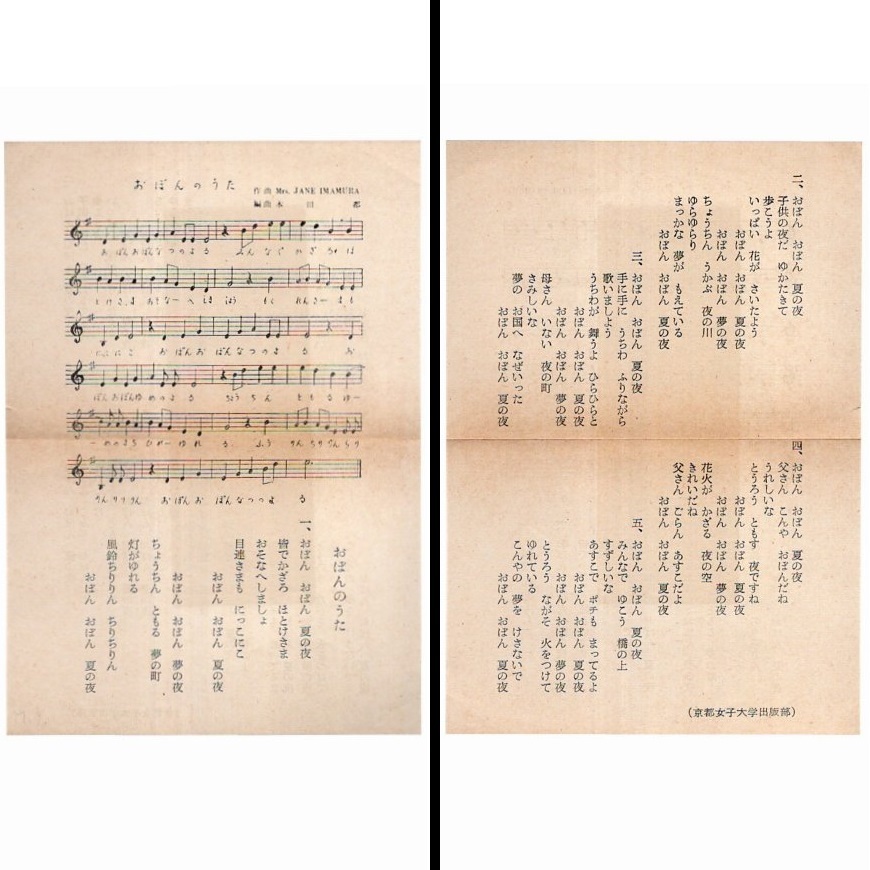 おぼんのうた
作曲 Mrs. JANE IMAMURA
編曲 本田 都
おぼんのうた
一、おぼん おぼん 夏の夜
皆でかざろ ほとけさま
おそなへしましょ
目連さまも にっこにこ
おぼん おぼん 夏の夜
おぼん おぼん 夢の夜
ちょうちん ともる 夢の町
灯がゆれる
風鈴ちりりん ちりちりん
おぼん おぼん 夏の夜
二、おぼん おぼん 夏の夜
子供の夜だ ゆかたきて
歩こうよ
いっぱい 花が さいたよう
おぼん おぼん 夏の夜
おぼん おぼん 夢の夜
ちょうちん うかぶ 夜の川
ゆらゆらり
まっかな 夢が もえている
おぼん おぼん 夏の夜
三、おぼん おぼん 夏の夜
手に手に うちわ ふりながら
歌いましよう
うちわが 舞うよ ひらひらと
おぼん おぼん 夏の夜
おぼん おぼん 夢の夜
母さん いない 夜の町
さみしいな
夢の お国へ なぜいった
おぼん おぼん 夏の夜
四、おぼん おぼん 夏の夜
父さん こんや おぼんだね
うれしいな
とうろう ともす 夜ですね
おぼん おぼん 夏の夜
おぼん おぼん 夢の夜
花火が かざる 夜の空
きれいだね
父さん ごらん あすこだよ
おぼん おぼん 夏の夜
五、おぼん おぼん 夏の夜
みんなで ゆこう 橋の上
すずしいな
あすこで ポチも まってるよ
おぼん おぼん 夏の夜
おぼん おぼん 夢の夜
とうろう ながそ 火をつけて
ゆれている
こんやの 夢を けさないで
おぼん おぼん 夏の夜
(京都女子大学出版部)